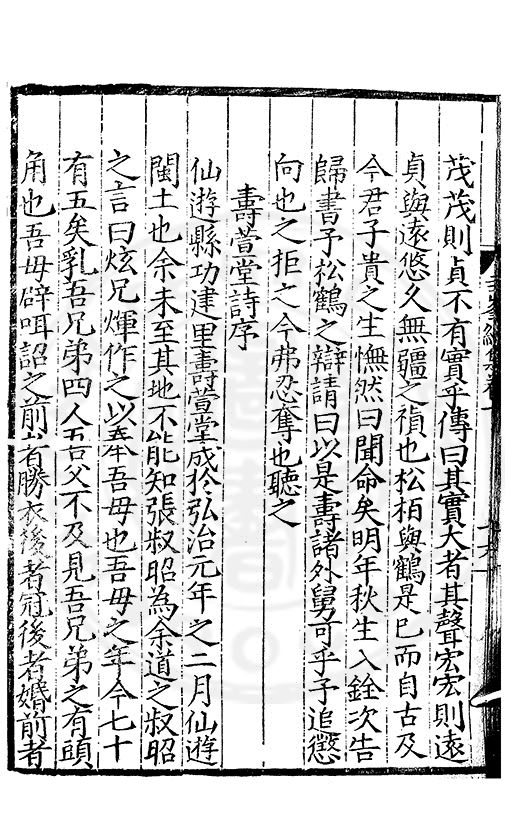 茂茂則貞不有實乎傳曰其實大者其聲宏宏則遠
貞與遠悠久無疆之禎也松栢與鶴是已而自古及
今君子貴之生憮然曰聞命矣明年秋生入銓次告
歸書予松鶴之辯請曰以是壽諸外舅可乎予追懲
向也之拒之今弗忍奪也聽之
壽萱堂詩序
仙遊縣功建里壽萱堂成於弘治元年之二月仙遊
閩土也余未至其地不能知張叔昭為余道之叔昭
之言曰炫兄煇作之以奉吾母也吾母之年今七十
有五矣乳吾兄弟四人吾父不及見吾兄弟之有頭
角也吾母辟咡詔之前者勝衣後者冠後者婚前者